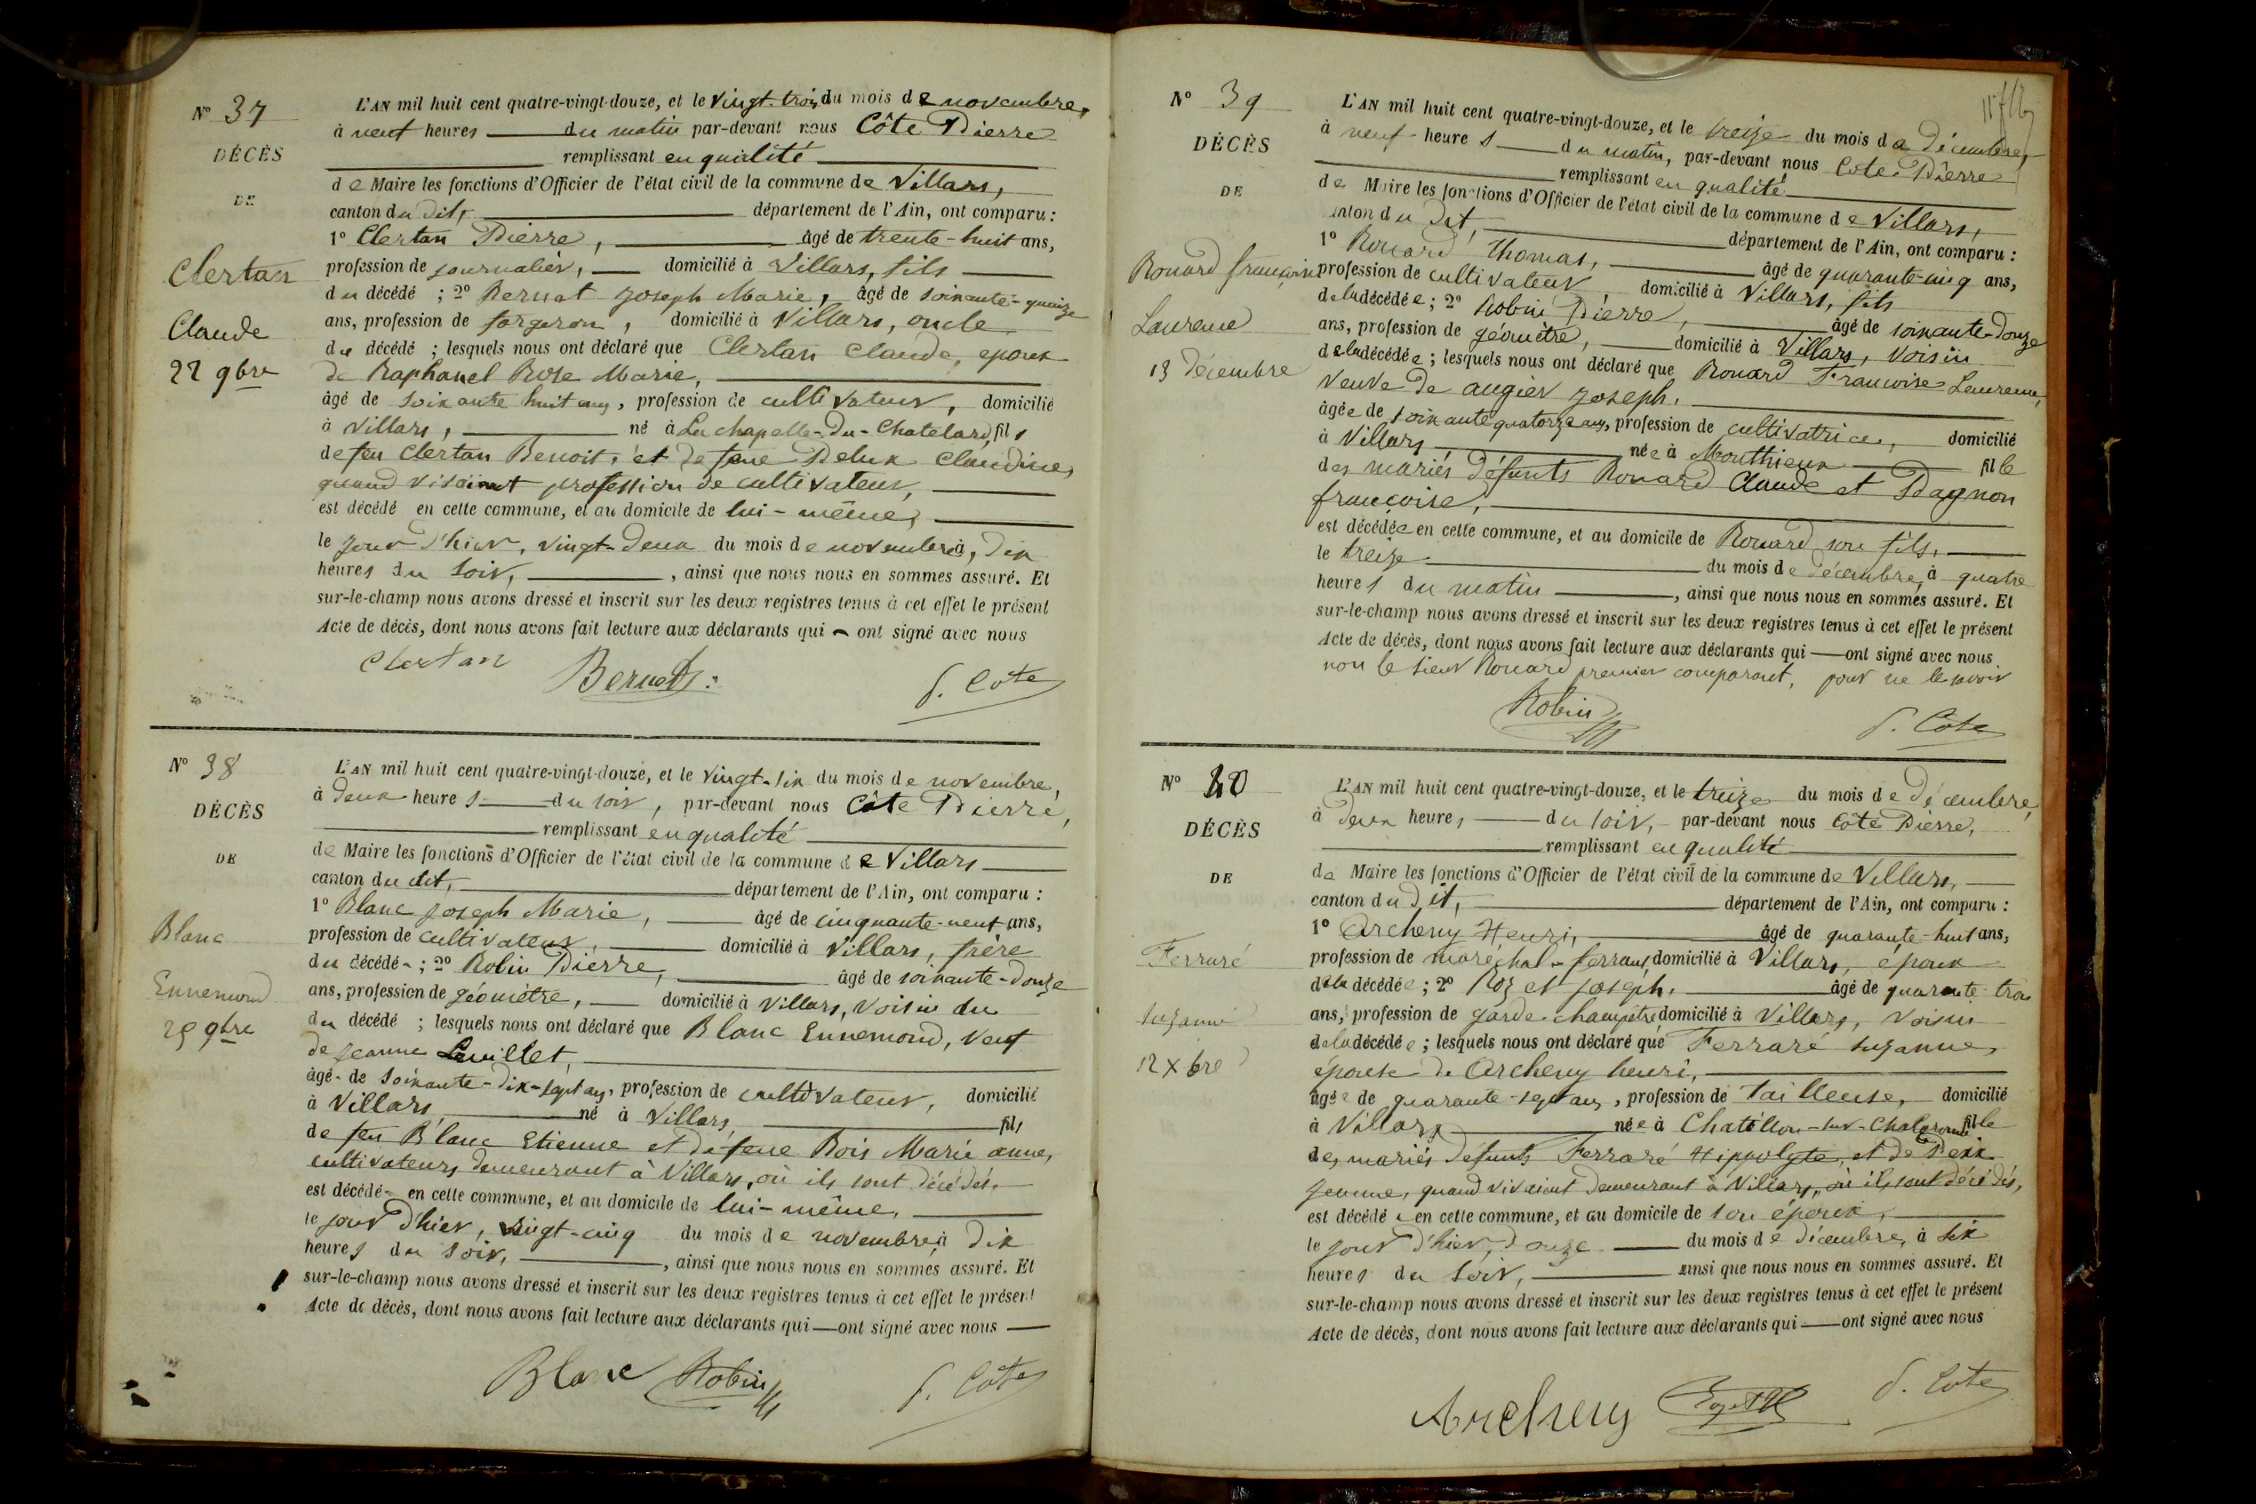 Nº 37
DÉCÈS
DE
Clertan
Claude
22 9bre
L'AN mil huit cent quatre-vingt-douze, et le vingt-trois du mois de novembre,
à neuf heures du matin par-devant nous Côte Pierre
remplissant en qualité
de Maire les fonctions d'Officier de l'état civil de la commune de Villars,
canton du dit, département de l'Ain, ont comparu :
1º Clertan Pierre, âgé de trente-huit ans,
profession de journalier, domicilié à Villars, fils
du décédé ; 2º Bernet Joseph Marie, âgé de soixante-quinze
ans, profession de forgeron, domicilié à Villars, oncle
du décédé ; lesquels nous ont déclaré que Clertan Claude, époux
de Raphanel Rose Marie,
âgé de soixante huit ans, profession de cultivateur, domicilié
à Villars, né à La chapelle-du-Chatelard, fils
de feu Clertan Benoit, et de feue Claudine,
quand vivaient profession de cultivateur,
est décédé en cette commune, et au domicile de lui-même,
le jour d'hier, vingt-deux du mois de novembre à, dix
heures du soir, , ainsi que nous nous en sommes assuré. Et
sur-le-champ nous avons dressé et inscrit sur les deux registres tenus à cet effet le présent
Acte de décès, dont nous avons fait lecture aux déclarants qui ont signé avec nous
Clertan Bernet P. Cote
Nº 38
DÉCÈS
DE
Blanc
Ennemond
25 9bre
L'AN mil huit cent quatre-vingt-douze, et le vingt-six du mois de novembre,
à deux heures du soir, par-devant nous Côte Pierre,
remplissant en qualité
de Maire les fonctions d'Officier de l'état civil de la commune de Villars
canton du dit, département de l'Ain, ont comparu :
1º Blanc Joseph Marie, âgé de cinquante-neuf ans,
profession de cultivateur, domicilié à Villars, frère
du décédé ; 2º Robin Pierre, âgé de soixante-douze
ans, profession de géomètre, domicilié à Villars, voisin du
du décédé ; lesquels nous ont déclaré que Blanc Ennemond, veuf
de Jeanne
âgé de soixante-dix-sept ans, profession de cultivateur, domicilié
à Villars, né à Villars, fils
de feu Blanc Etienne et de feue Bois Marie anne,
cultivateurs demeurant à Villars, où ils sont décédés.
est décédé en cette commune, et au domicile de lui-même,
le jour d'hier, vingt-cinq du mois de novembre, à dix
heures du soir, , ainsi que nous nous en sommes assuré. Et
sur-le-champ nous avons dressé et inscrit sur les deux registres tenus à cet effet le présent
Acte de décès, dont nous avons fait lecture aux déclarants qui ont signé avec nous
Blanc Robin P. Côte
Nº 39
DÉCÈS
DE
Rouard françoise
Laurence
13 décembre
L'AN mil huit cent quatre-vingt-douze, et le treize du mois de décembre,
à neuf heures du matin, par-devant nous Cote Pierre
remplissant en qualité
de Maire les fonctions d'Officier de l'état civil de la commune de Villars,
canton du dit, département de l'Ain, ont comparu :
1º Rouard Thomas, âgé de quarante-cinq ans,
profession de cultivateur domicilié à Villars, fils
de la décédée ; 2º Robin Pierre, âgé de soixante-douze
ans, profession de géomètre, domicilié à Villars, voisin
de la décédée ; lesquels nous ont déclaré que Rouard Francoise Laurence,
veuve de augier Joseph,
âgée de soixante quatorze ans, profession de cultivatrice, domicilié
à Villars née à Monthieux fille
des mariés défunts Rouard Claude et Pagnon
françoise,
est décédée en cette commune, et au domicile de Rouard son fils,
le treize du mois de décembre, à quatre
heures du matin , ainsi que nous nous en sommes assuré. Et
sur-le-champ nous avons dressé et inscrit sur les deux registres tenus à cet effet le présent
Acte de décès, dont nous avons fait lecture aux déclarants qui ont signé avec nous
non le sieur Rouard premier comparant, pour ne le savoir
Robin P. Cote
Nº 40
DÉCÈS
DE
Ferraré
suzanne
12 Xbre
L'AN mil huit cent quatre-vingt-douze, et le treize du mois de décembre,
à deux heures du soir, par-devant nous Côte Pierre,
remplissant en qualité
de Maire les fonctions d'Officier de l'état civil de la commune de Villars,
canton du dit, département de l'Ain, ont comparu :
1º Archeny Henri, âgé de quarante-huit ans,
profession de maréchal-ferrant, domicilié à Villars, époux
de la décédée ; 2º Rozet Joseph, âgé de quarante-trois
ans, profession de garde-champêtre domicilié à Villars, voisin
de la décédée ; lesquels nous ont déclaré que Ferraré suzanne,
épouse de Archeny henri,
âgée de quarante-sept ans, profession de tailleuse, domicilié
à Villars née à Chatillon-sur-Chalaronne fille
des mariés défunts Ferraré Hippolyte, et de
Jeanne, quand vivaient demeurant à Villars, où ils sont décédés,
est décédée en cette commune, et au domicile de son époux,
le jour d'hier, douze du mois de décembre, à six
heures du soir, ainsi que nous nous en sommes assuré. Et
sur-le-champ nous avons dressé et inscrit sur les deux registres tenus à cet effet le présent
Acte de décès, dont nous avons fait lecture aux déclarants qui ont signé avec nous
Archeny P. Cote